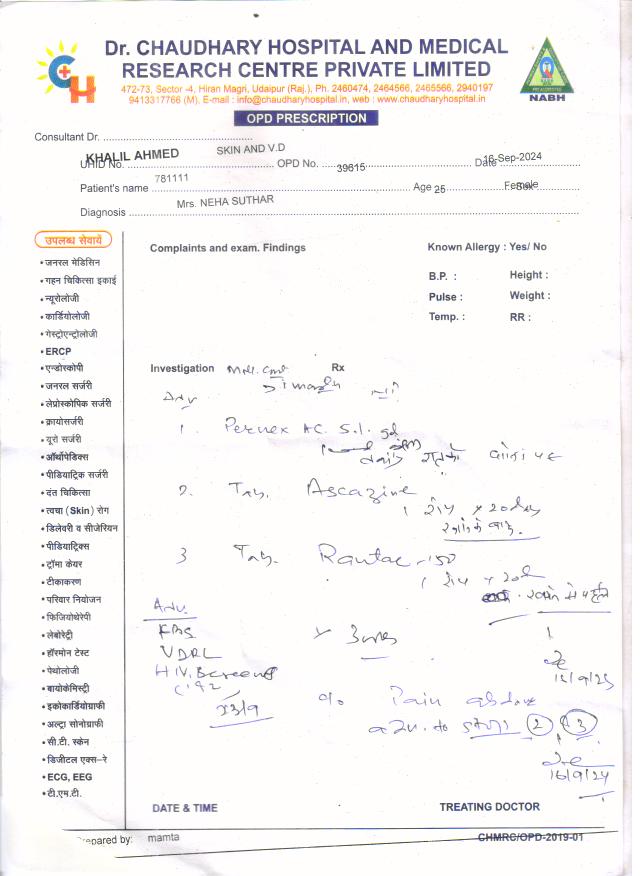 Dr. CHAUDHARY HOSPITAL AND MEDICAL
RESEARCH CENTRE PRIVATE LIMITED
472-73, Sector -4, Hiran Magri, Udaipur (Raj.), Ph. 2460474, 2464566, 2465566, 2940197
9413317766 (M), E-mail : info@chaudharyhospital.in, web : www.chaudharyhospital.in
NABH
OPD PRESCRIPTION
Consultant Dr.
KHALIL AHMED SKIN AND V.D
UHID No. OPD No. 39615 Date 16-Sep-2024
Patient's name 781111 Age 25 Sex Female
Diagnosis Mrs. NEHA SUTHAR
उपलब्ध सेवायें
Complaints and exam. Findings Known Allergy : Yes/ No
• जनरल मेडिसिन
• गहन चिकित्सा इकाई B.P. : Height :
• न्यूरोलोजी Pulse : Weight :
• कार्डियोलोजी Temp. : RR :
• गेस्ट्रोएन्ट्रोलोजी
• ERCP
• एन्डोस्कोपी Investigation Rx
• जनरल सर्जरी
• लेप्रोस्कोपिक सर्जरी Adv
• क्रायोसर्जरी 1. Pernex AC S.l. gel
• यूरो सर्जरी
• ऑर्थोपेडिक्स
• पीडियाट्रिक सर्जरी
• दंत चिकित्सा 2. Tab. Ascazine
• त्वचा (Skin) रोग 1 रोज x 20 days
• डिलेवरी व सीजेरियन
• पीडियाट्रिक्स
• ट्रॉमा केयर 3 Tab. Rantac-150
• टीकाकरण 1 रोज x 20d
• परिवार नियोजन Adv.
• फिजियोथेरेपी FBS
• लेबोरेट्री VDRL
• हॉरमोन टेस्ट HIV. Screen
• पेथोलोजी
• बायोकेमिस्ट्री
• इकोकार्डियोग्राफी 23/9 c/o Pain abdo
• अल्ट्रा सोनोग्राफी adv. to stop 2, 3
• सी.टी. स्केन
• डिजीटल एक्स-रे 16/9/24
• ECG, EEG
• टी.एम.टी.
DATE & TIME TREATING DOCTOR
Prepared by: mamta CHMRC/OPD-2019-01